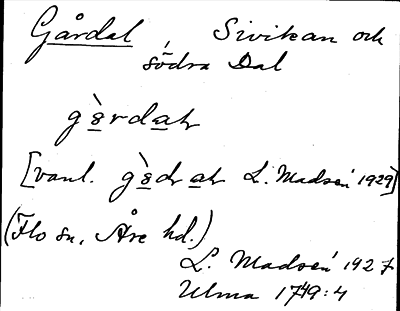 Gårdal, Sivikan och
södra Dal
[vanl. L. Madsén 1929]
(Flo sn, Åse hd.)
L. Madsén 1927
Ulma 1749:4